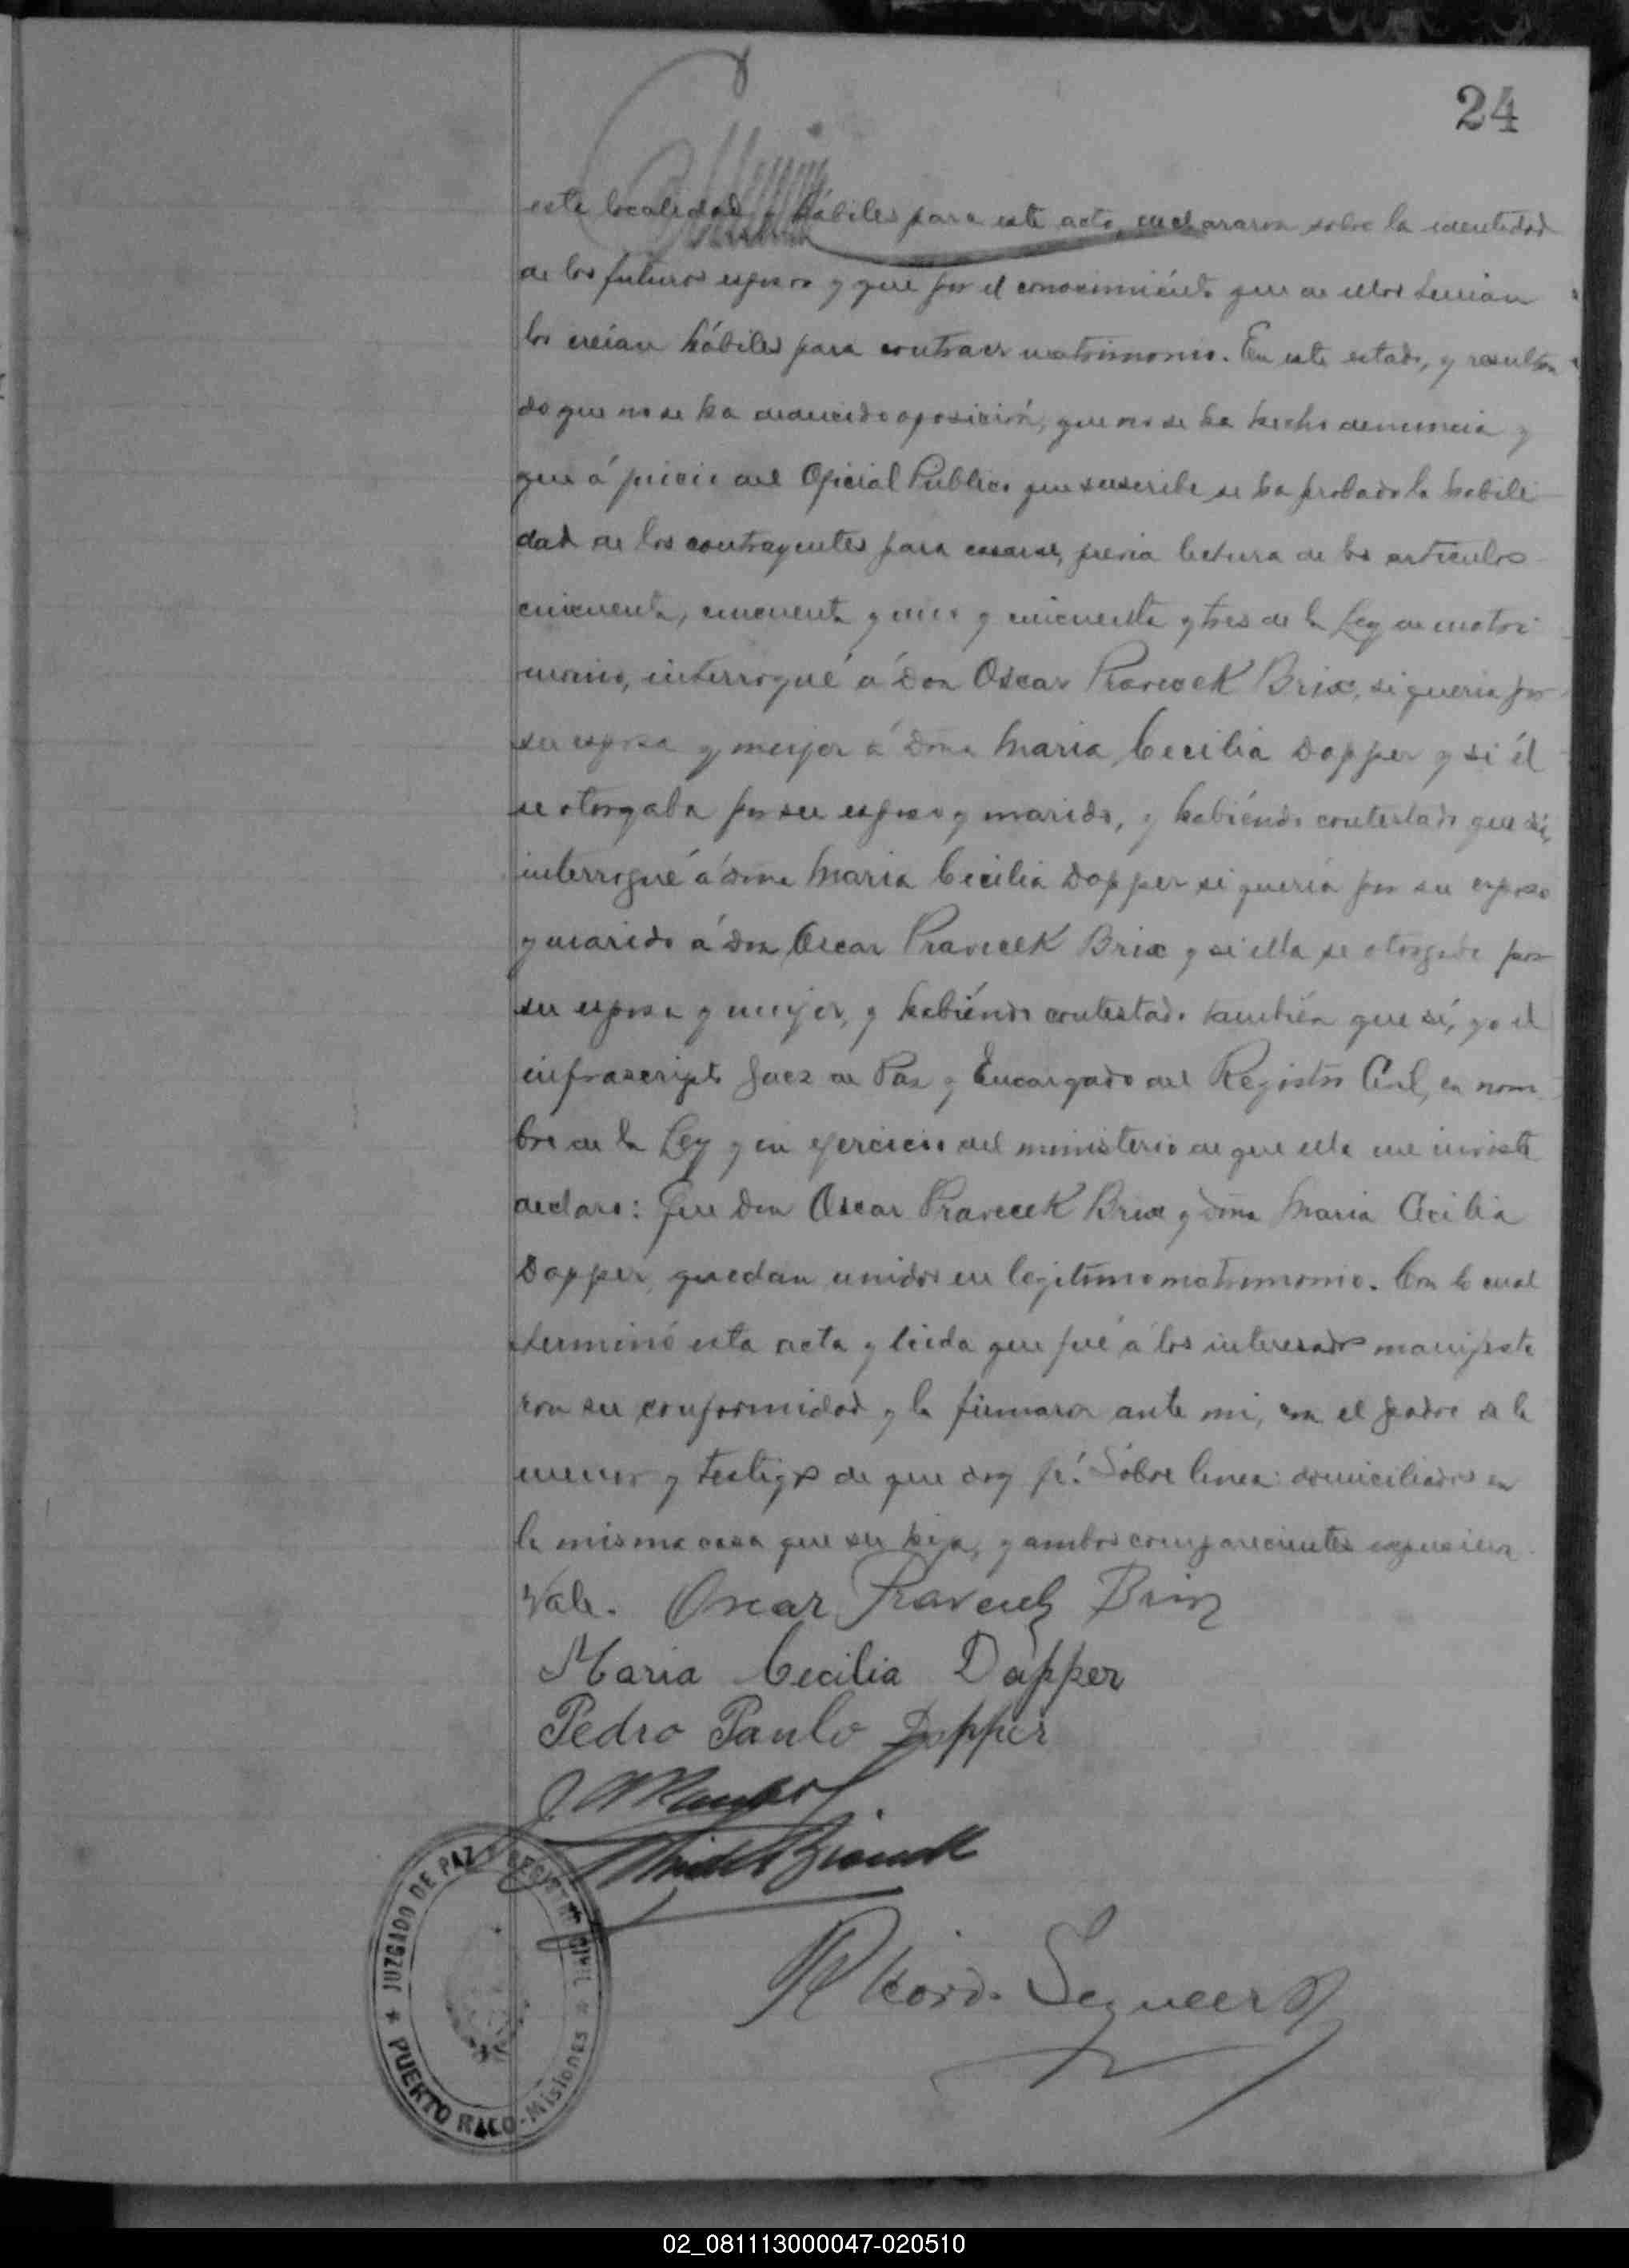 24
esta localidad y hábiles para este acto, declararon sobre la identidad
de los futuros esposos y que por el conocimiénto que de ellos tenian
los creían hábiles para contraer matrimonio. En este estado, y resultan
do que no se ha deducido oposición, que no se ha hecho denuncia y
que á juicio del Oficial Público que suscribe se ha probado la habili
dad de los contrayentes para casarse, previa lectura de los artículos
cincuenta, cincuenta y uno y cincuenta y tres de la Ley de matri
monio, interrogué á Don Oscar Pravecek Brix, si queria por
su esposa y mujer á Doña Maria Cecilia Dapper y si él
se otorgaba por su esposo y marido, y habiéndo contestado que sí,
interrogué á doña Maria Cecilia Dapper si quería por su esposo
y marido á Don Oscar Pravecek Brix y si ella se otorgaba por
su esposa y mujer, y habiéndo contestado también que sí, yo el
infrascripto Juez de Paz y Encargado del Registro Civil, en nom
bre de la Ley y en ejercicio del ministerio de que ella me inviste
declaro: Que Don Oscar Pravecek Brix y doña Maria Cecilia
Dapper, quedan unidos en legítimo matrimonio. Con lo cual
terminó esta acta y leida que fué á los interesados manifesta
ron su conformidad y la firmaron ante mi, con el padre de la
menor y testigos de que doy fé. Sobre linea: domiciliados en
la misma casa que su hija, y ambos comparecientes expusieron.
Vale. Oscar Pravecek Brix
Maria Cecilia Dapper
Pedro Paulo Dapper
JUZGADO DE PAZ Y REGISTRO CIVIL
PUERTO RICO - Misiones
02_081113000047-020510